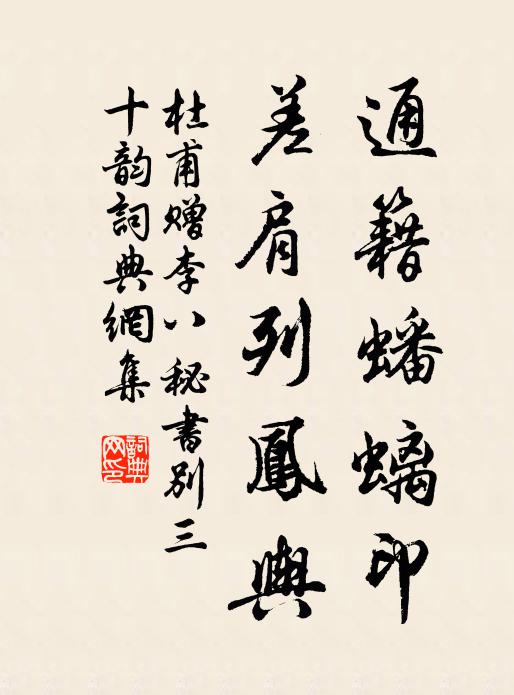 通籍蟠螭印
差肩列鳳輿
杜甫贈李八秘書別三
十韵詞典網集
詞典
网印